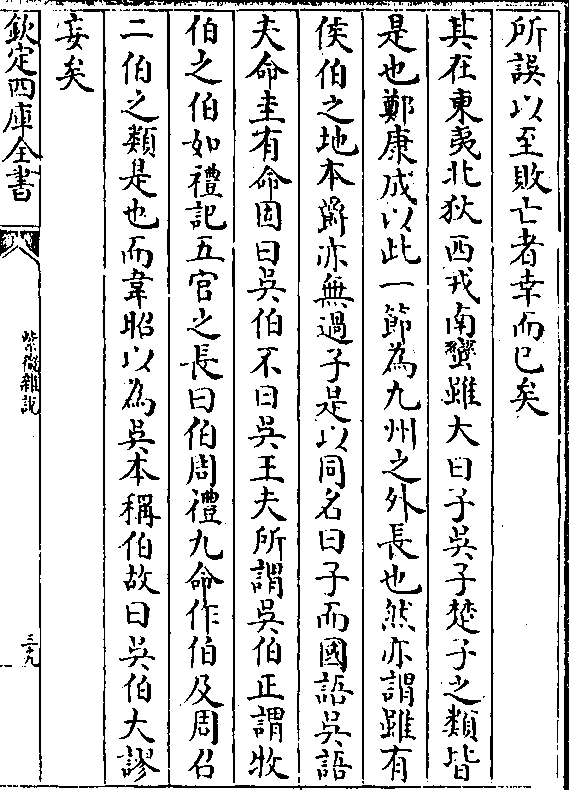 所誤以至敗亡者幸而已矣
其在東夷北狄西戎南蠻雖大曰子吳子楚子之類皆
是也鄭康成以此一節為九州之外長也然亦謂雖有
侯伯之地本爵亦無過子是以同名曰子而國語吳語
夫命圭有命固曰吳伯不曰吳王夫所謂吳伯正謂牧
伯之伯如禮記五官之長曰伯周禮九命作伯及周召
二伯之類是也而韋昭以為吳本稱伯故曰吳伯大謬
妄矣
欽定四庫全書
紫微雜說
三十九